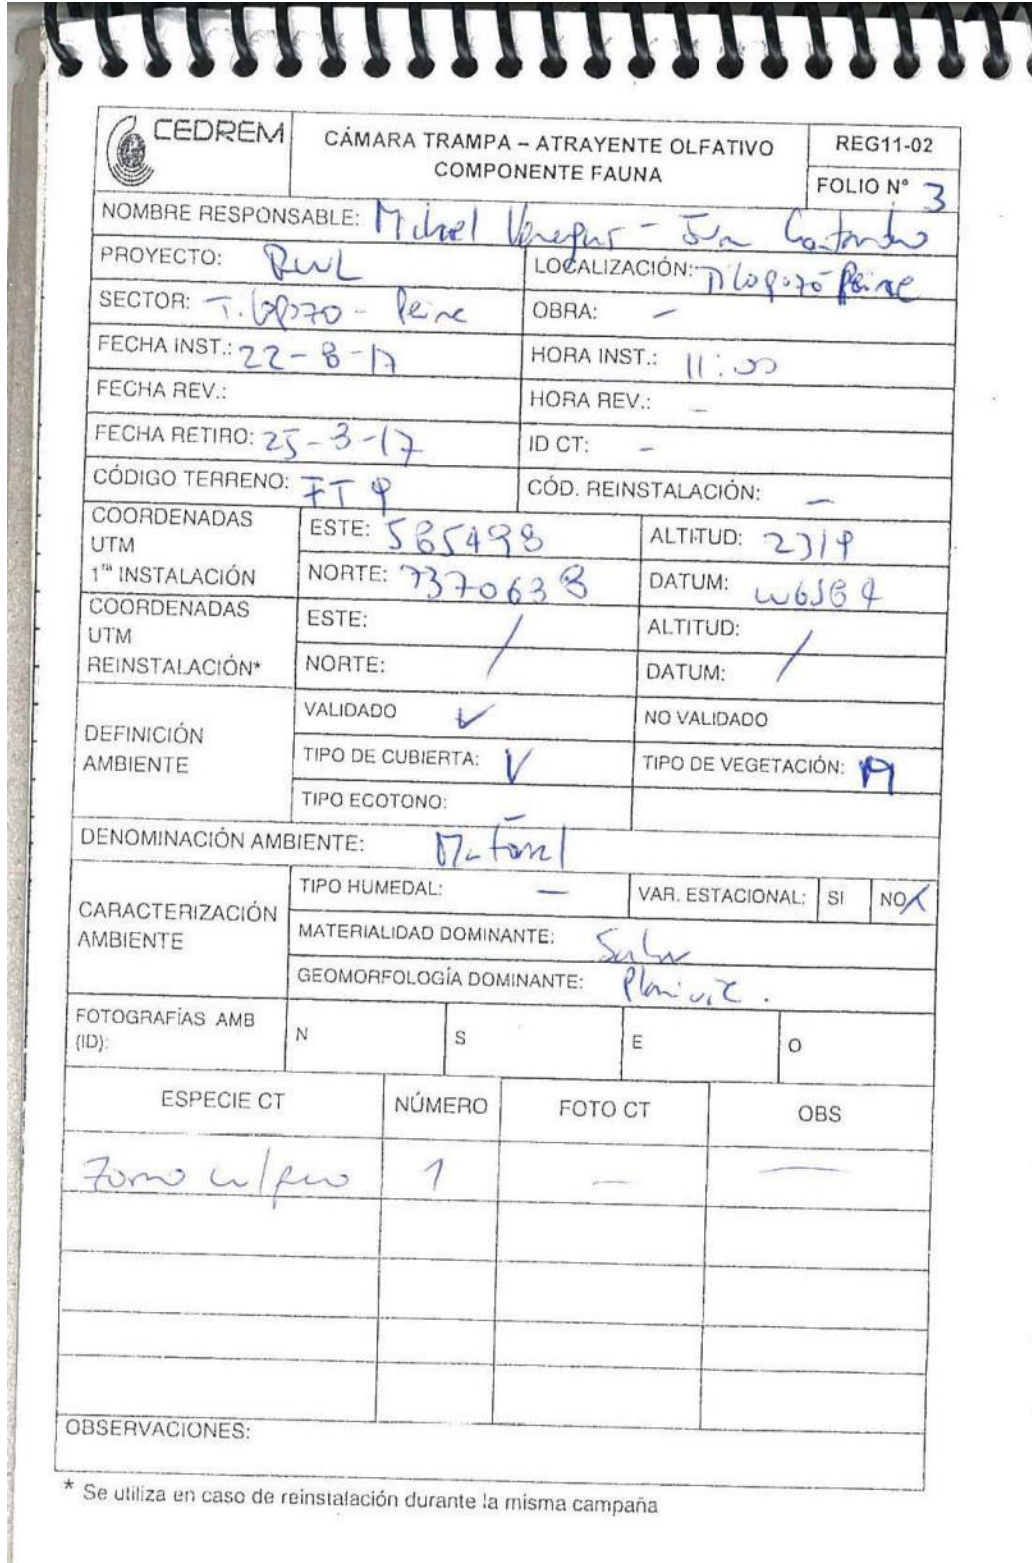 CEDREM
CÁMARA TRAMPA – ATRAYENTE OLFATIVO
COMPONENTE FAUNA
REG11-02
FOLIO N° 3
NOMBRE RESPONSABLE:
PROYECTO: LOCALIZACIÓN: Tilopozo Peine
SECTOR: Tilopozo - Peine OBRA: –
FECHA INST.: 22-8-17 HORA INST.: 11:00
FECHA REV.: HORA REV.: –
FECHA RETIRO: ID CT: –
CÓDIGO TERRENO: CÓD. REINSTALACIÓN: –
COORDENADAS UTM 1ra INSTALACIÓN
ESTE: ALTITUD:
NORTE: 7370638 DATUM: WGS84
COORDENADAS UTM REINSTALACIÓN*
ESTE: / ALTITUD: /
NORTE: DATUM:
DEFINICIÓN AMBIENTE
VALIDADO ✓ NO VALIDADO
TIPO DE CUBIERTA: V TIPO DE VEGETACIÓN: M
TIPO ECOTONO: –
DENOMINACIÓN AMBIENTE: Matorral
CARACTERIZACIÓN AMBIENTE
TIPO HUMEDAL: – VAR. ESTACIONAL: SI NO X
MATERIALIDAD DOMINANTE:
GEOMORFOLOGÍA DOMINANTE: Planicie.
FOTOGRAFÍAS AMB (ID): N S E O
ESPECIE CT NÚMERO FOTO CT OBS
Zorro culpeo 1 – –
OBSERVACIONES:
* Se utiliza en caso de reinstalación durante la misma campaña